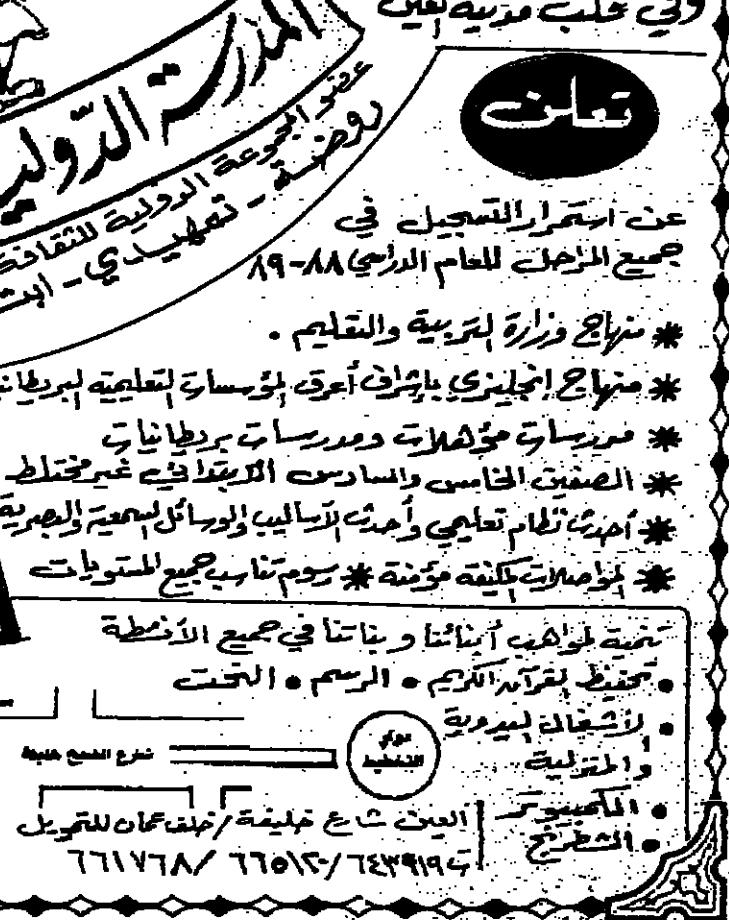 وفي قلب مدينة العين
المدرسة الدولية
عضو المجموعة الدولية للثقافة
روضة - تمهيدي - ابت
تعلن
عن استمرار التسجيل في
جميع المراحل للعام الدراسي ٨٨-٨٩
* منهاج وزارة التربية والتعليم .
* منهاج إنجليزي بإشراف أعرق المؤسسات التعليمية البريطاني
* مدرسات مؤهلات ومدرسات بريطانيات
* الصفين الخامس والسادس الابتدائي غير مختلط
* أحدث نظام تعليمي وأحدث الأساليب والوسائل السمعية والبصرية
* المواصلات المكيفة مؤمنة * رسوم تناسب جميع المستويات
تنمية لمواهب أبنائنا وبناتنا في جميع الأنشطة
• تحفيظ القرآن الكريم • الرسم • النحت
• الأشغال اليدوية
والمنزلية
• الكمبيوتر
• الشطرنج
شارع الشيخ خليفة
دوار التخطيط
العين شارع خليفة / خلف عمان للتمويل
ت ٦٤٣٩١٩ / ٦٦٥١٢٠ / ٦٦١٧٦٨